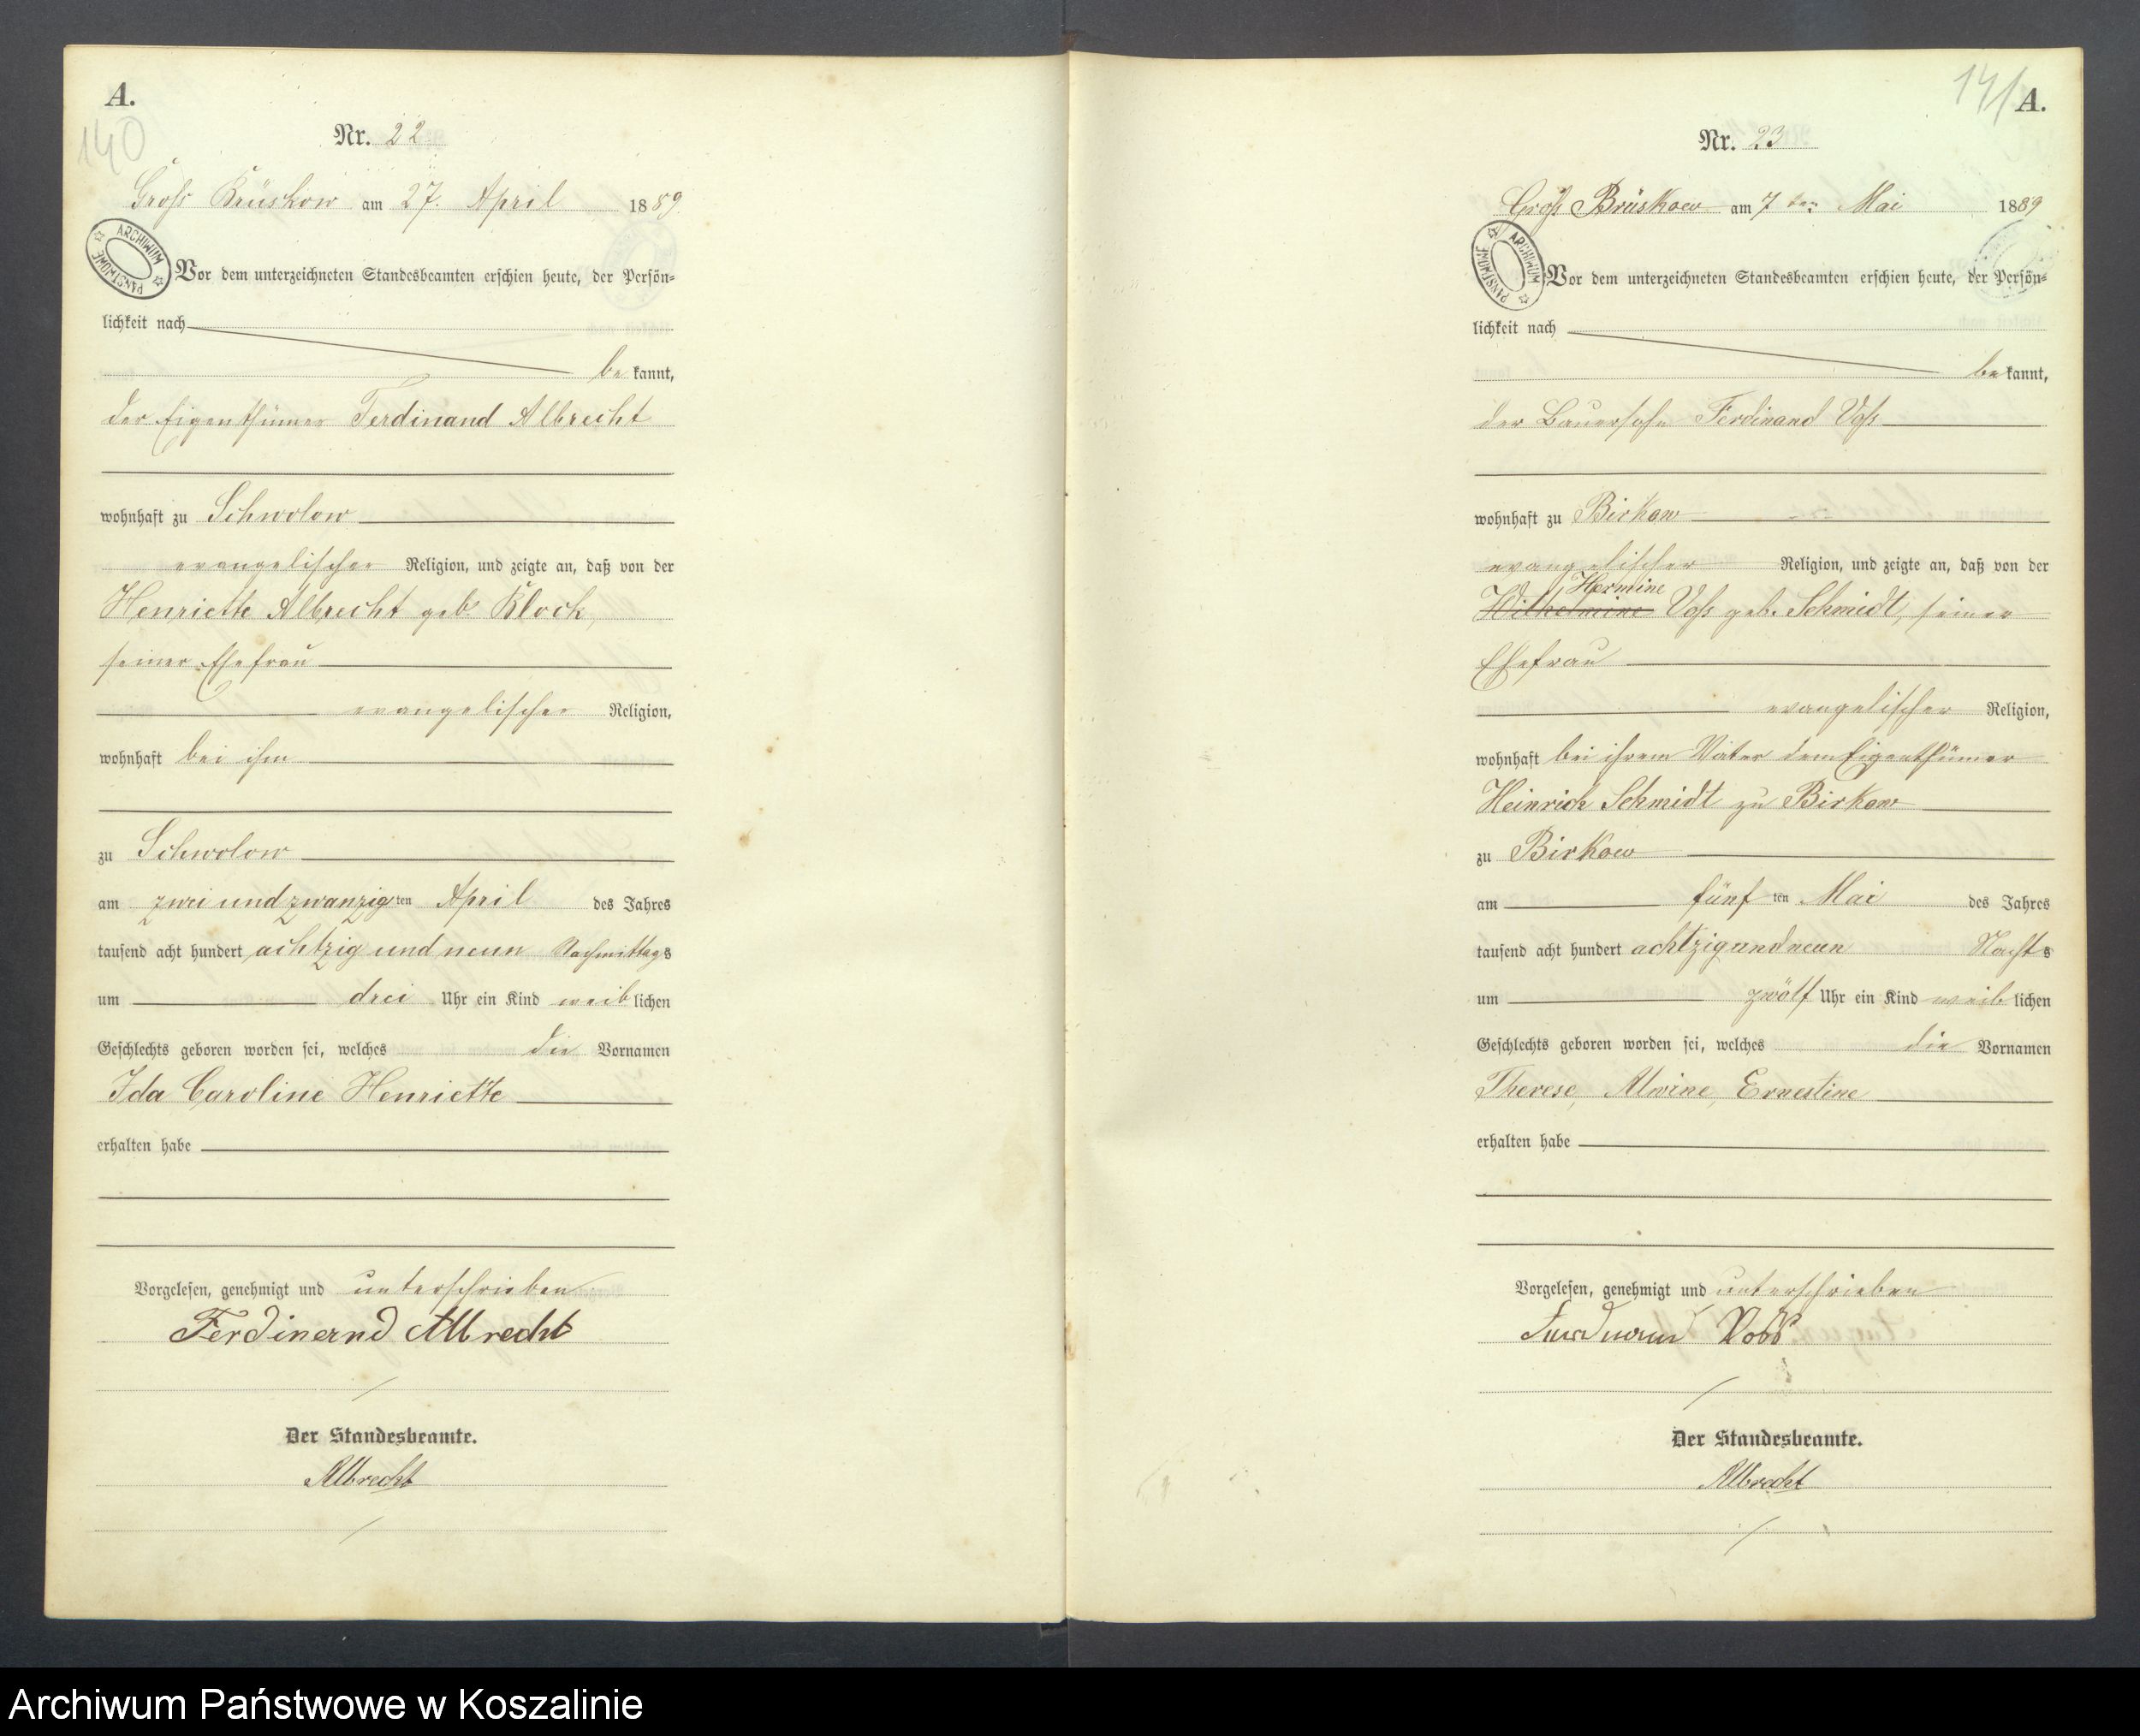 A.
140
Nr. 22
Gross Brüskow am 27. April 1889.
ARCHIWUM PAŃSTWOWE
Vor dem unterzeichneten Standesbeamten erschien heute, der Persön-
lichkeit nach
be kannt,
der Eigenthümer Ferdinand Albrecht
wohnhaft zu Schwolow
evangelischer Religion, und zeigte an, daß von der
Henriette Albrecht geb. Block,
seiner Ehefrau
evangelischer Religion,
wohnhaft bei ihm
zu Schwolow
am zwei und zwanzig ten April des Jahres
tausend acht hundert achtzig und neun Nachmittags
um drei Uhr ein Kind weiblichen
Geschlechts geboren worden sei, welches die Vornamen
Ida Caroline Henriette
erhalten habe
Vorgelesen, genehmigt und unterschrieben
Ferdinernd Albrecht
Der Standesbeamte.
Albrecht
141
A.
Nr. 23
Groß Brüskow am 7ten Mai 1889
ARCHIWUM PAŃSTWOWE
Vor dem unterzeichneten Standesbeamten erschien heute, der Persön-
lichkeit nach
be kannt,
der Bauersohn Ferdinand Voß
wohnhaft zu Birkow
evangelischer Religion, und zeigte an, daß von der
Hermine
Wilhelmine Voß geb. Schmidt, seiner
Ehefrau
evangelischer Religion,
wohnhaft bei ihrem Vater dem Eigenthümer
Heinrich Schmidt zu Birkow
zu Birkow
am fünf ten Mai des Jahres
tausend acht hundert achtzigundneun Nachts
um zwölf Uhr ein Kind weiblichen
Geschlechts geboren worden sei, welches die Vornamen
Therese, Alwine, Ernestine
erhalten habe
Vorgelesen, genehmigt und unterschrieben
Voß
Der Standesbeamte.
Albrecht
Archiwum Państwowe w Koszalinie